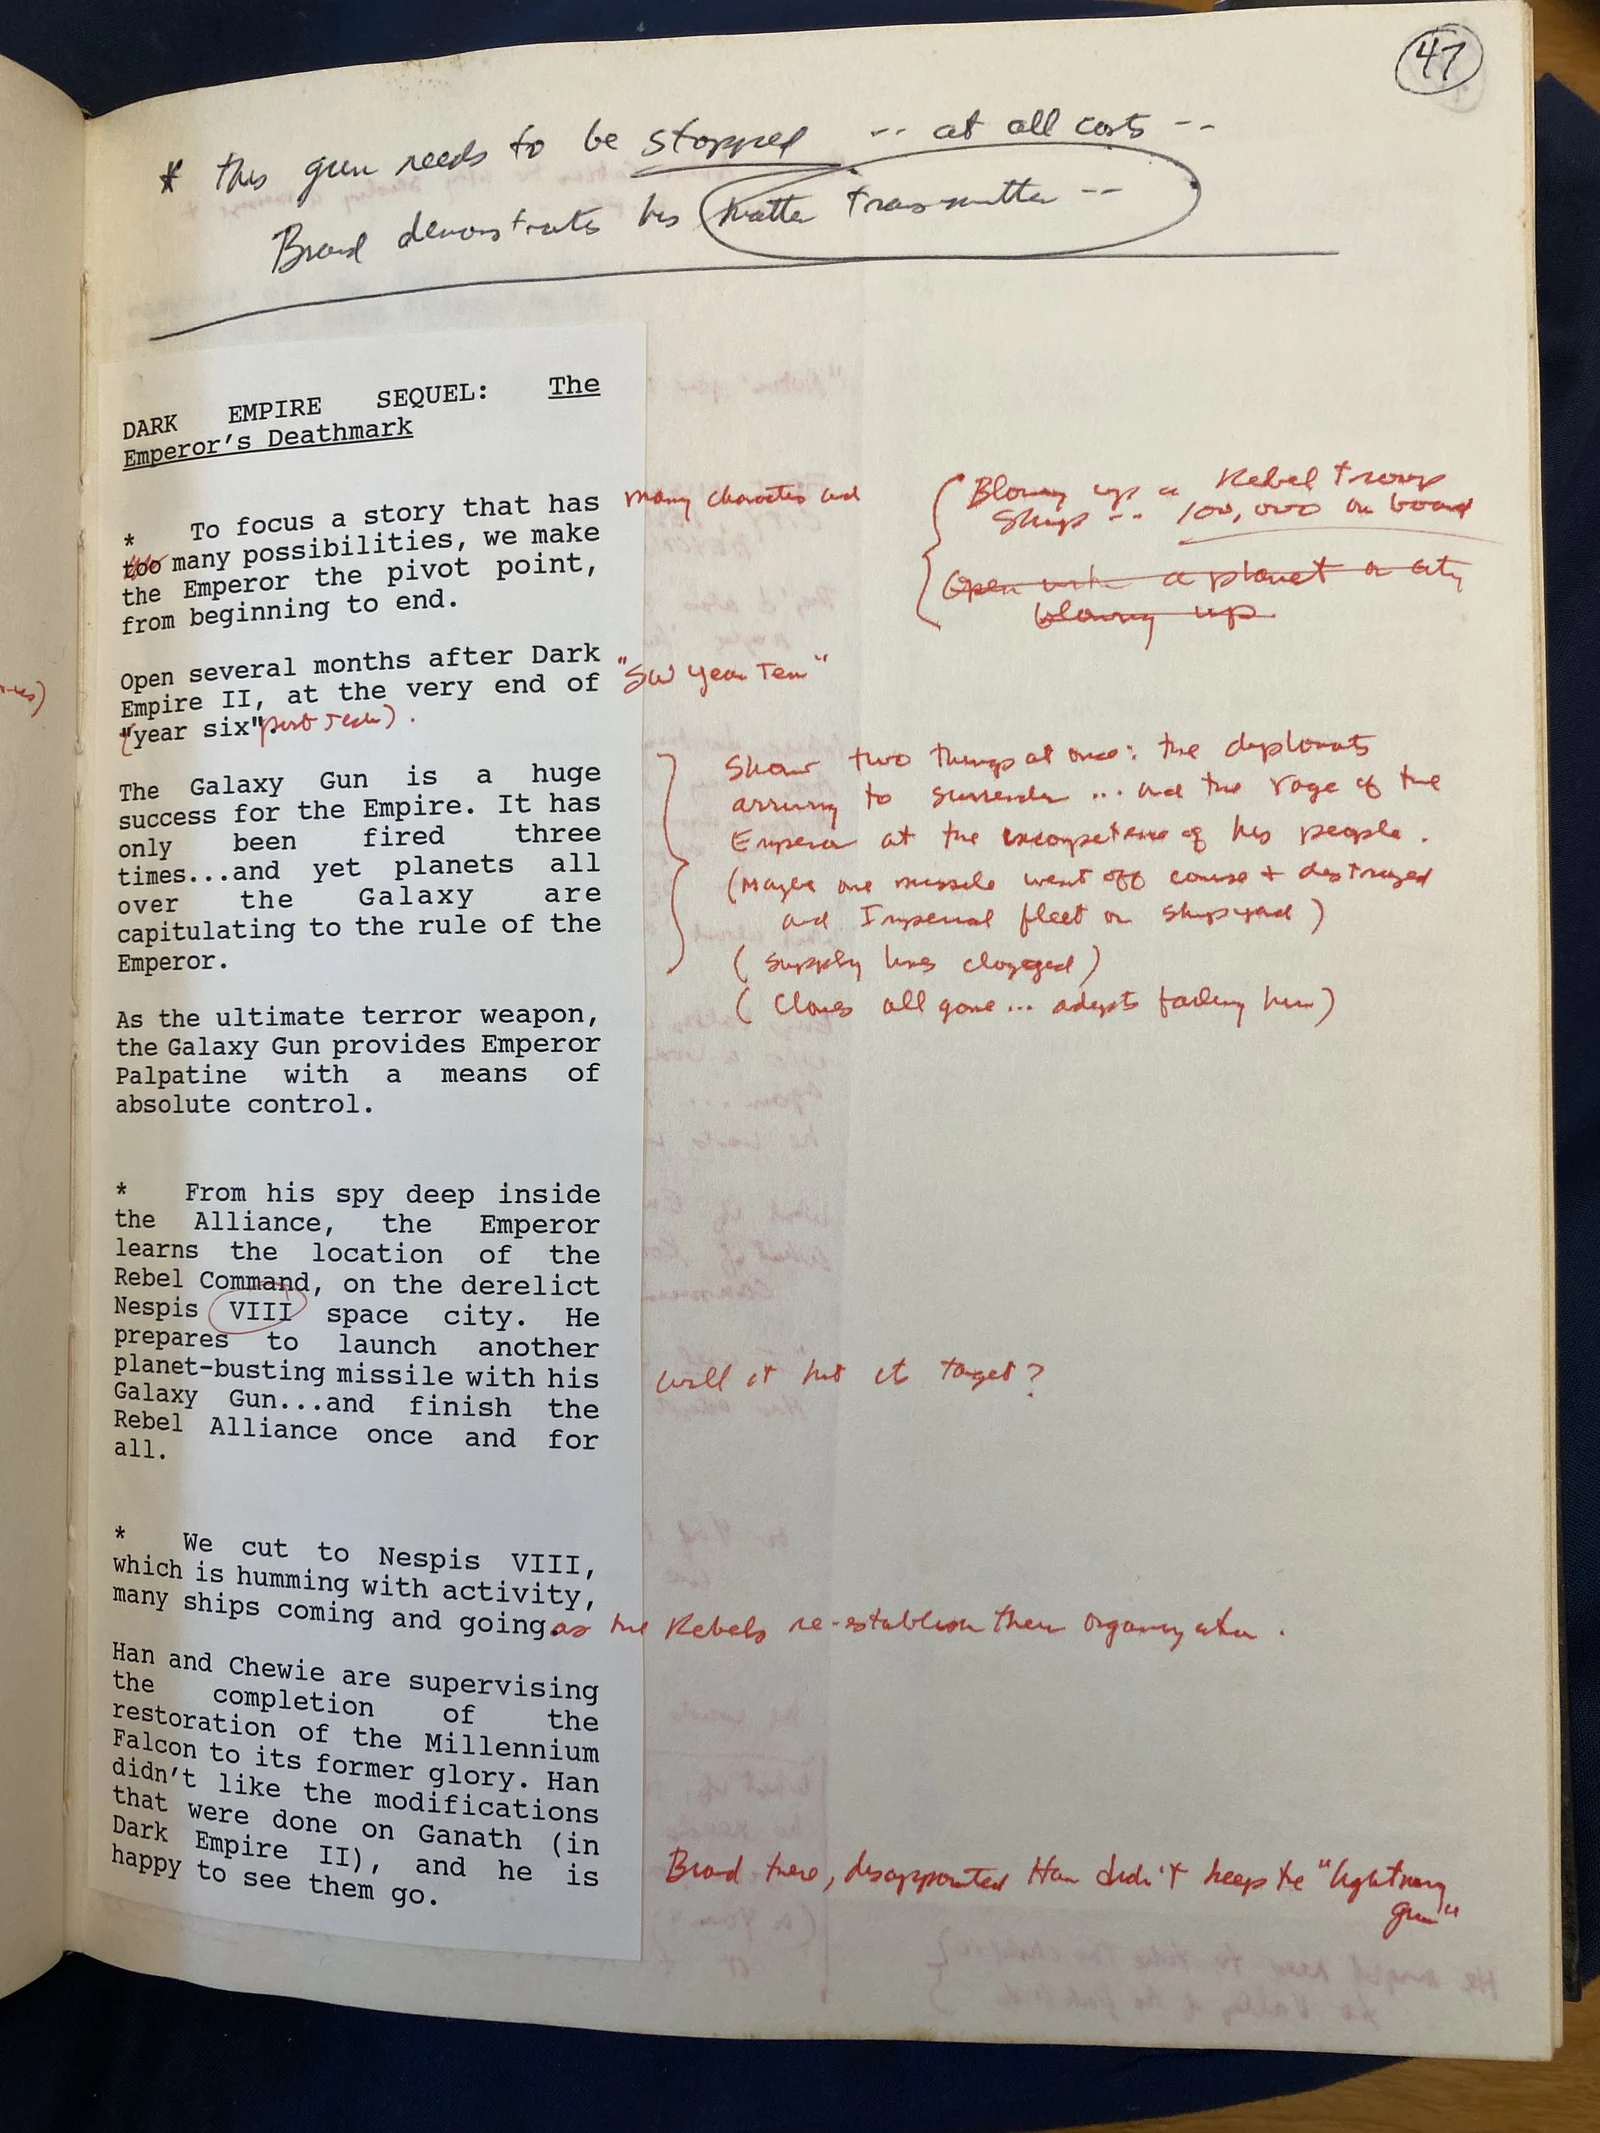 47
* This gun needs to be stopped -- at all costs --
Brand demonstrates his matter transmitter --
DARK EMPIRE SEQUEL: The
Emperor's Deathmark
* To focus a story that has many characters and
too many possibilities, we make
the Emperor the pivot point,
from beginning to end.
Blowing up a Rebel troop
ships -- 100,000 on board
Open with a planet or city
blowing up
Open several months after Dark
Empire II, at the very end of "SW Year Ten"
("year six" post Jedi).
The Galaxy Gun is a huge
success for the Empire. It has
only been fired three
times...and yet planets all
over the Galaxy are
capitulating to the rule of the
Emperor.
Show two things at once: the diplomats
arriving to surrender ... and the rage of the
Emperor at the incompetence of his people.
(Maybe one missile went off course + destroyed
and Imperial fleet or shipyard)
(supply lines clogged)
(Clones all gone ... adepts failing him)
As the ultimate terror weapon,
the Galaxy Gun provides Emperor
Palpatine with a means of
absolute control.
* From his spy deep inside
the Alliance, the Emperor
learns the location of the
Rebel Command, on the derelict
Nespis VIII space city. He
prepares to launch another
planet-busting missile with his
Galaxy Gun...and finish the
Rebel Alliance once and for
all.
will it hit its target?
* We cut to Nespis VIII,
which is humming with activity,
many ships coming and going as the Rebels re-establish their organization.
Han and Chewie are supervising
the completion of the
restoration of the Millennium
Falcon to its former glory. Han
didn't like the modifications
that were done on Ganath (in
Dark Empire II), and he is
happy to see them go.
Brand there, disappointed Han didn't keep the "lightning
gun"